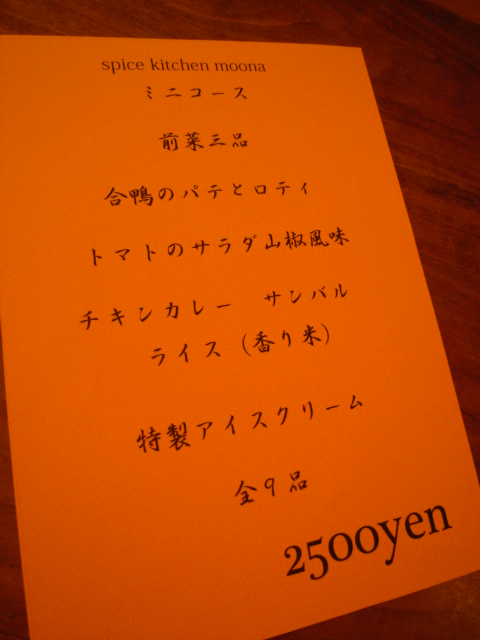 spice kitchen moona
ミニコース
前菜三品
合鴨のパテとロティ
トマトのサラダ山椒風味
チキンカレー　サンバル
ライス（香り米）
特製アイスクリーム
全9品
2500yen